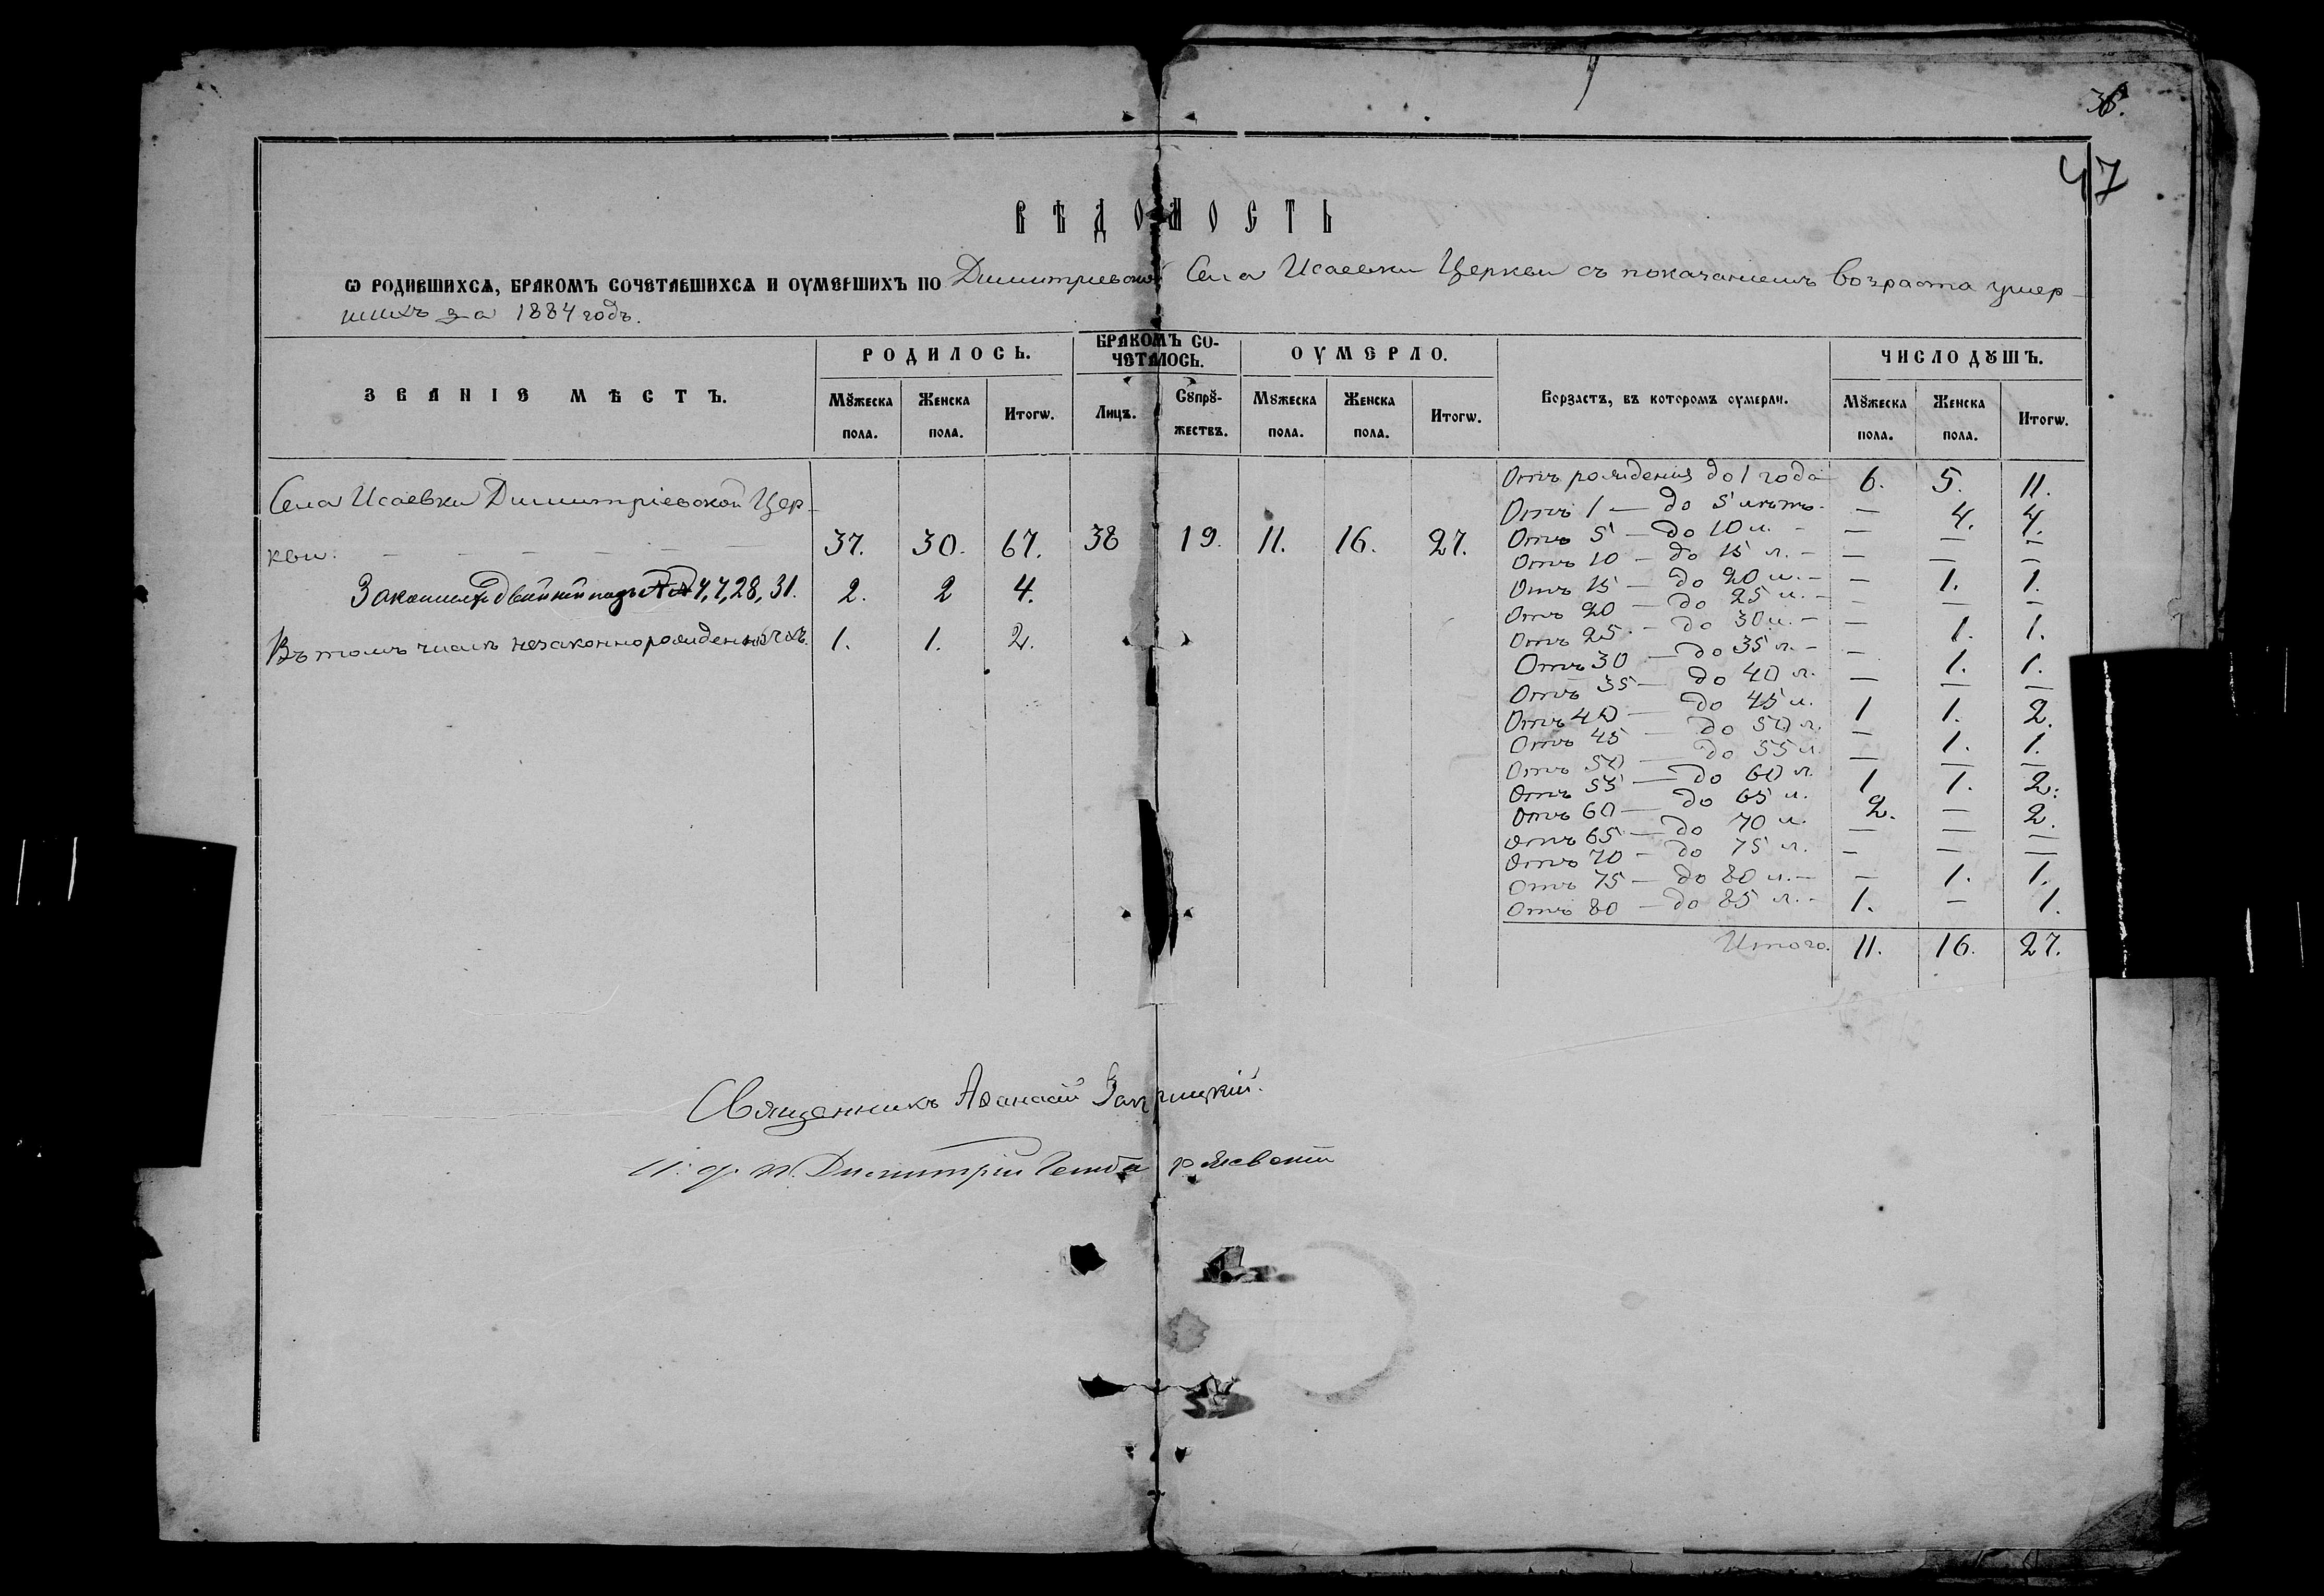 36.
47
ВѢДОМОСТЬ
Ѡ РОДИВШИХСѦ, БРАКОМЪ СОЧЕТАВШИХСѦ И ОУМЕРШИХЪ ПО Димитріевской Села Исаевки Церкви съ показаніемъ возраста умер-
шихъ за 1884 годъ.
ЗВАНІЕ МѢСТЪ. РОДИЛОСЬ. БРАКОМЪ СО-ЧЕТАЛОСЬ. ОУМЕРЛО. Ворзастъ, въ которомъ оумерли. ЧИСЛО ДꙋШЪ.
Мꙋжеска пола. Женска пола. Итогѡ. Лицъ. Сꙋпрꙋ-жествъ. Мꙋжеска пола. Женска пола. Итогѡ. Мꙋжеска пола. Женска пола. Итогѡ.
Села Исаевки Димитріевской Цер-
кви: — — — — — — 37. 30. 67. 38 19. 11. 16. 27.
4, 7, 28, 31. 2. 2 4.
Въ томъ числѣ незаконнорожденныхъ. 1. 1. 2.
Отъ рожденія до 1 года 6. 5. 11.
Отъ 1 — до 5 лѣтъ. — 4. 4.
Отъ 5 — до 10 л. — — — —
Отъ 10 — до 15 л. — — — —
Отъ 15 — до 20 л. — — 1. 1.
Отъ 20 — до 25 л. — — — —
Отъ 25 — до 30 л. — — 1. 1.
Отъ 30 — до 35 л. — — 1. 1.
Отъ 35 — до 40 л. — — —
Отъ 40 — до 45 л. 1 1. 2.
Отъ 45 — до 50 л. — 1. 1.
Отъ 50 — до 55 л. — — —
Отъ 55 — до 60 л. 1 1. 2.
Отъ 60 — до 65 л. 2. — 2.
Отъ 65 — до 70 л. — — —
Отъ 70 — до 75 л. — — —
Отъ 75 — до 80 л. — — 1. 1.
Отъ 80 — до 85 л. — 1. — 1.
Итого. 11. 16. 27.
Священникъ Аѳанасій
И. д. п. Димитрій